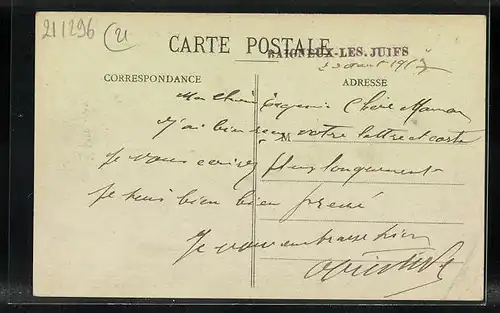 211296
21
CARTE POSTALE
BAIGNEUX-LES-JUIFS
23 août 1917
CORRESPONDANCE
ADRESSE
Ma Chère Eugenie Chère Maman
M
J'ai bien reçu votre lettre et carte
Je vous plus longuement
Je suis bien bien pressé
Je vous embrasse bien